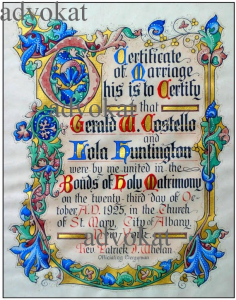 advokat
Certificate
of Marriage
This is to Certify
that
advokat
Gerald W. Costello
and
Lola Huntington
were by me united in the
Bonds of Holy Matrimony
on the twenty-third day of Oc-
tober, A.D. 1925, in the Church
of St. Mary, City of Albany,
New York.
advokat
Rev. Patrick J. Whelan
Officiating Clergyman